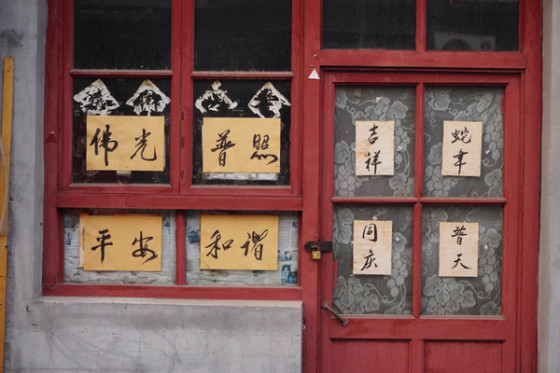 佛光
普照
平安
和谐
吉祥
蛇年
同庆
普天